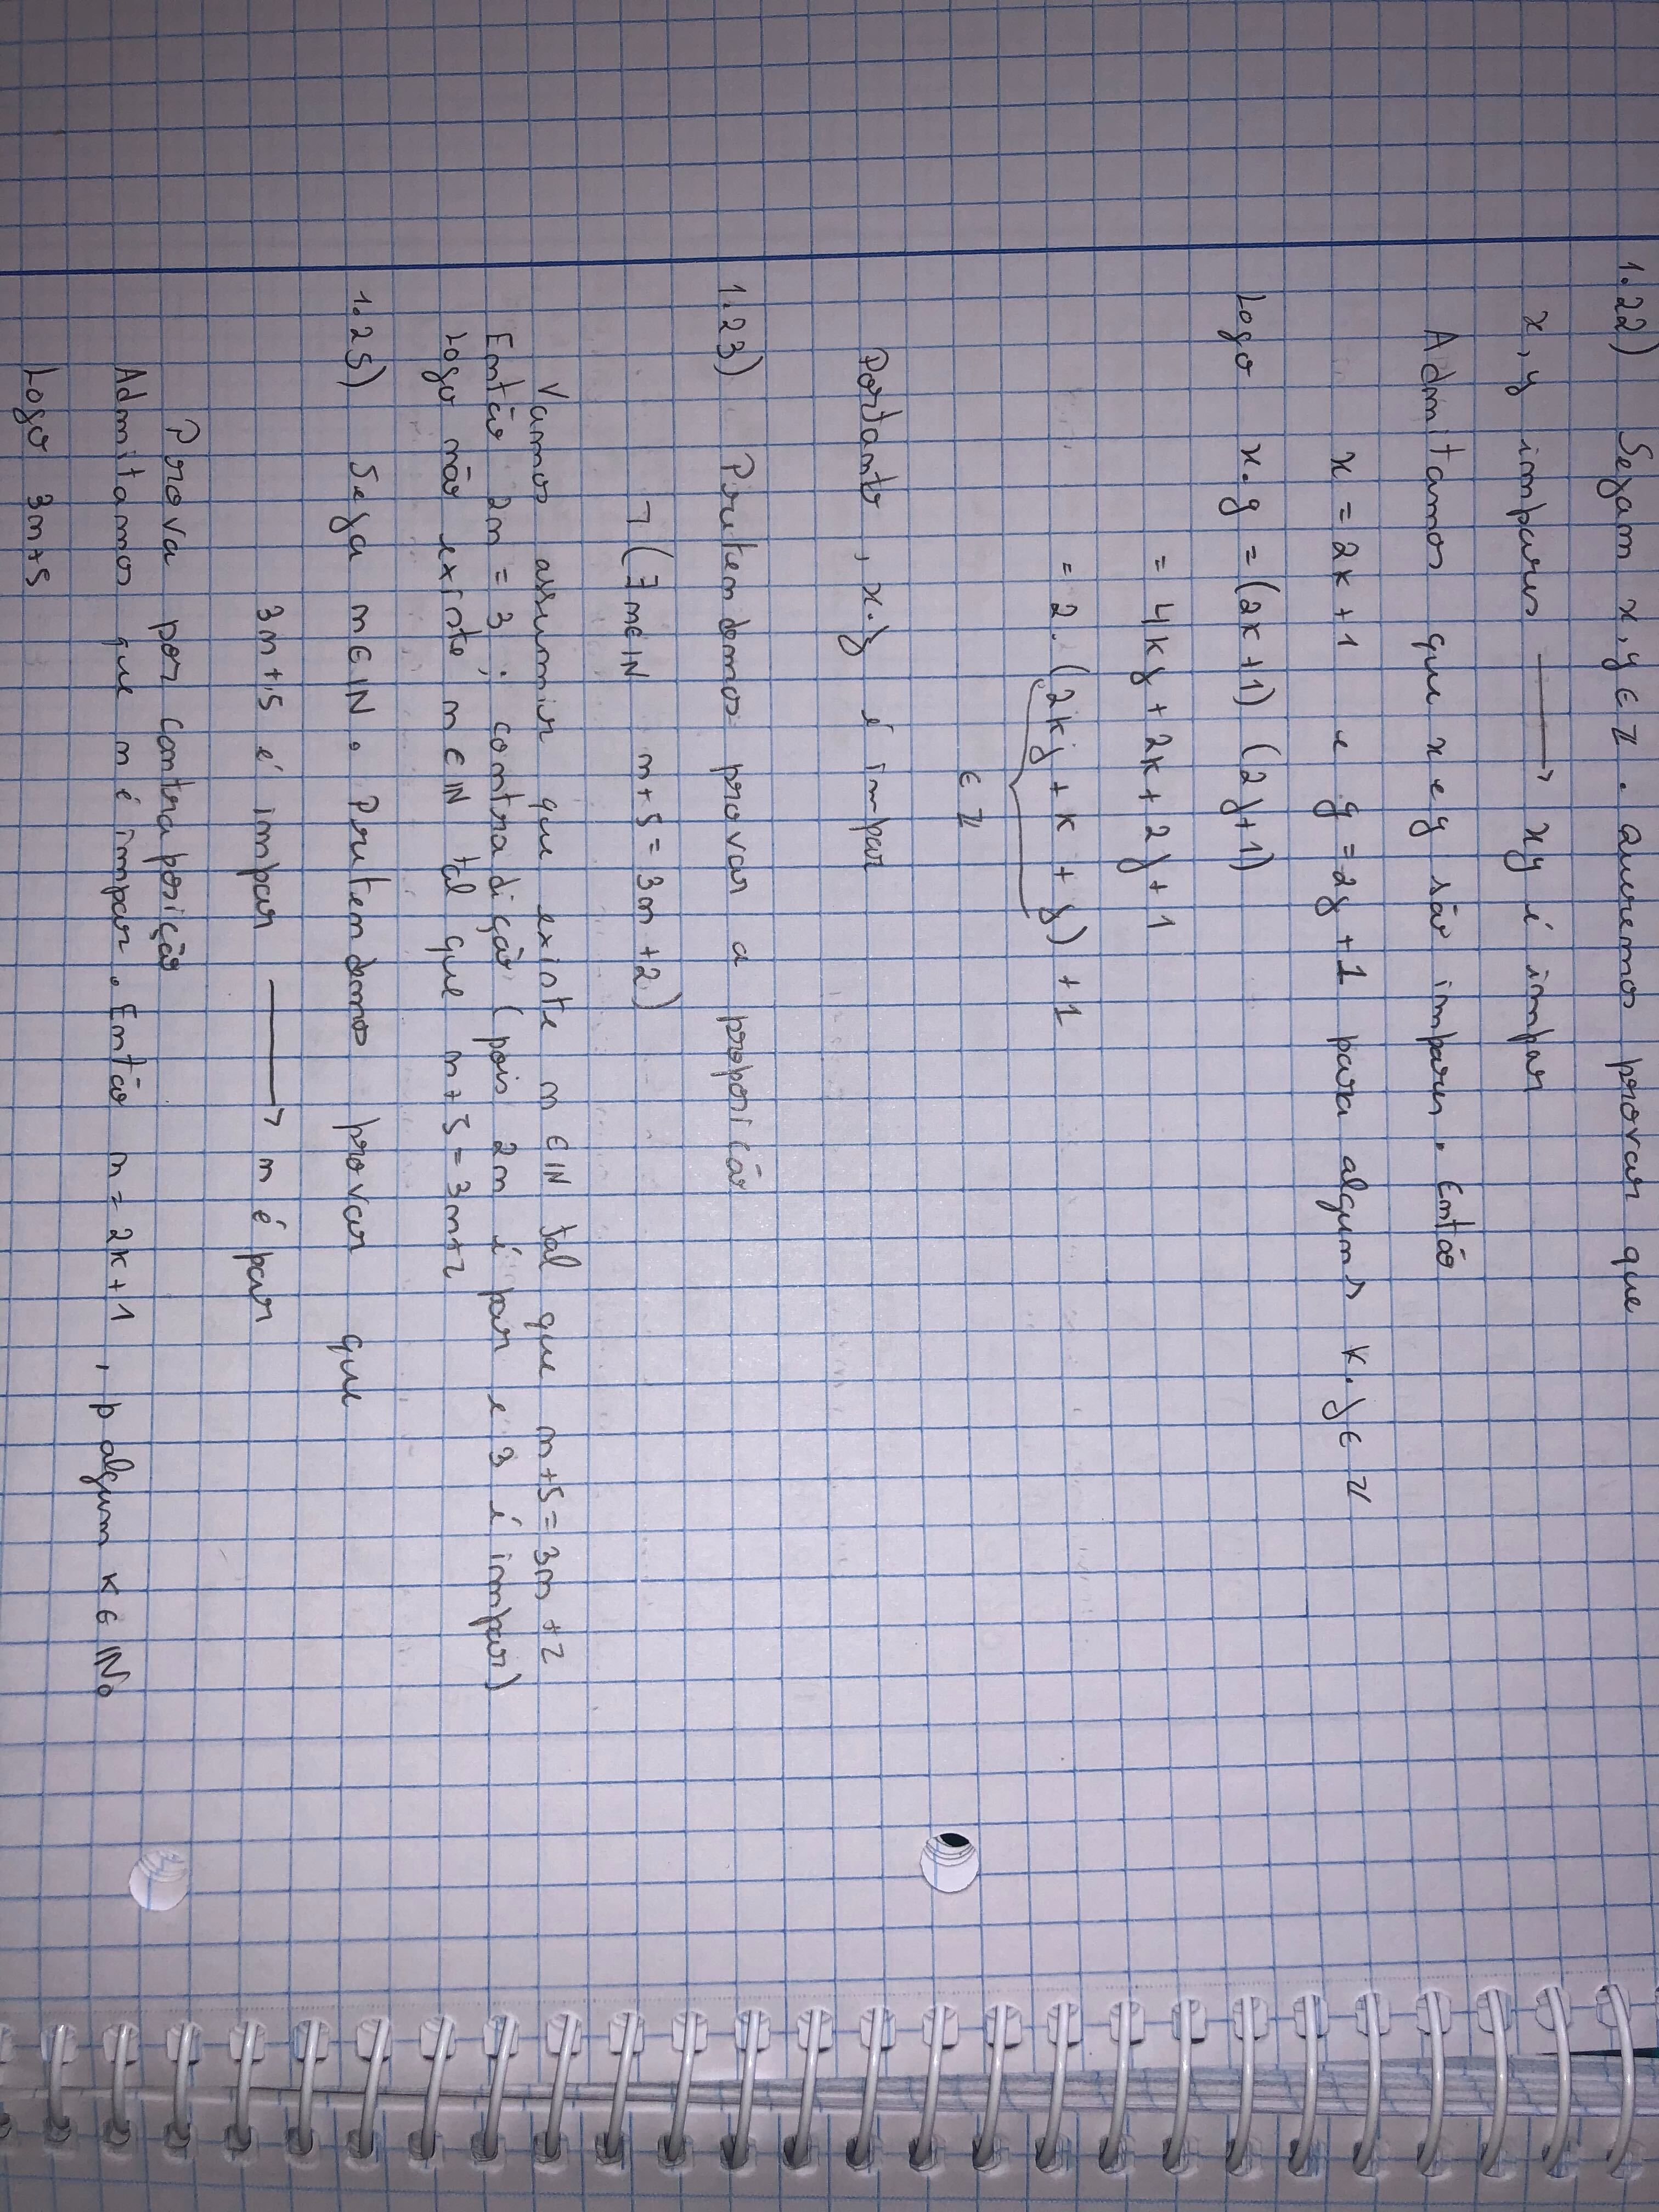 1.22) Sejam x, y ∈ ℤ. Queremos provar que
x, y impares ⟶ xy é impar
Admitamos que x e y são impares. Então
x = 2k+1 e y = 2j+1 para alguns k, j ∈ ℤ
Logo x.y = (2k+1) (2j+1)
= 4kj + 2k + 2j + 1
= 2. (2kj + k + j) + 1
∈ ℤ
Portanto, x.y é impar
1.23) Pretendemos provar a proposição
¬ (∃ n∈ℕ n+5 = 3n+2)
Vamos assumir que existe n ∈ ℕ tal que n+5 = 3n+2
Então 2n = 3 ; contradição (pois 2n é par e 3 é impar)
Logo não existe n ∈ ℕ tal que n+5 = 3n+2
1.25) Seja n ∈ ℕ. Pretendemos provar que
3n+5 é impar ⟶ n é par
Prova por contraposição
Admitamos que n é impar. Então n = 2k+1, p algum k ∈ ℕ₀
Logo 3n+5